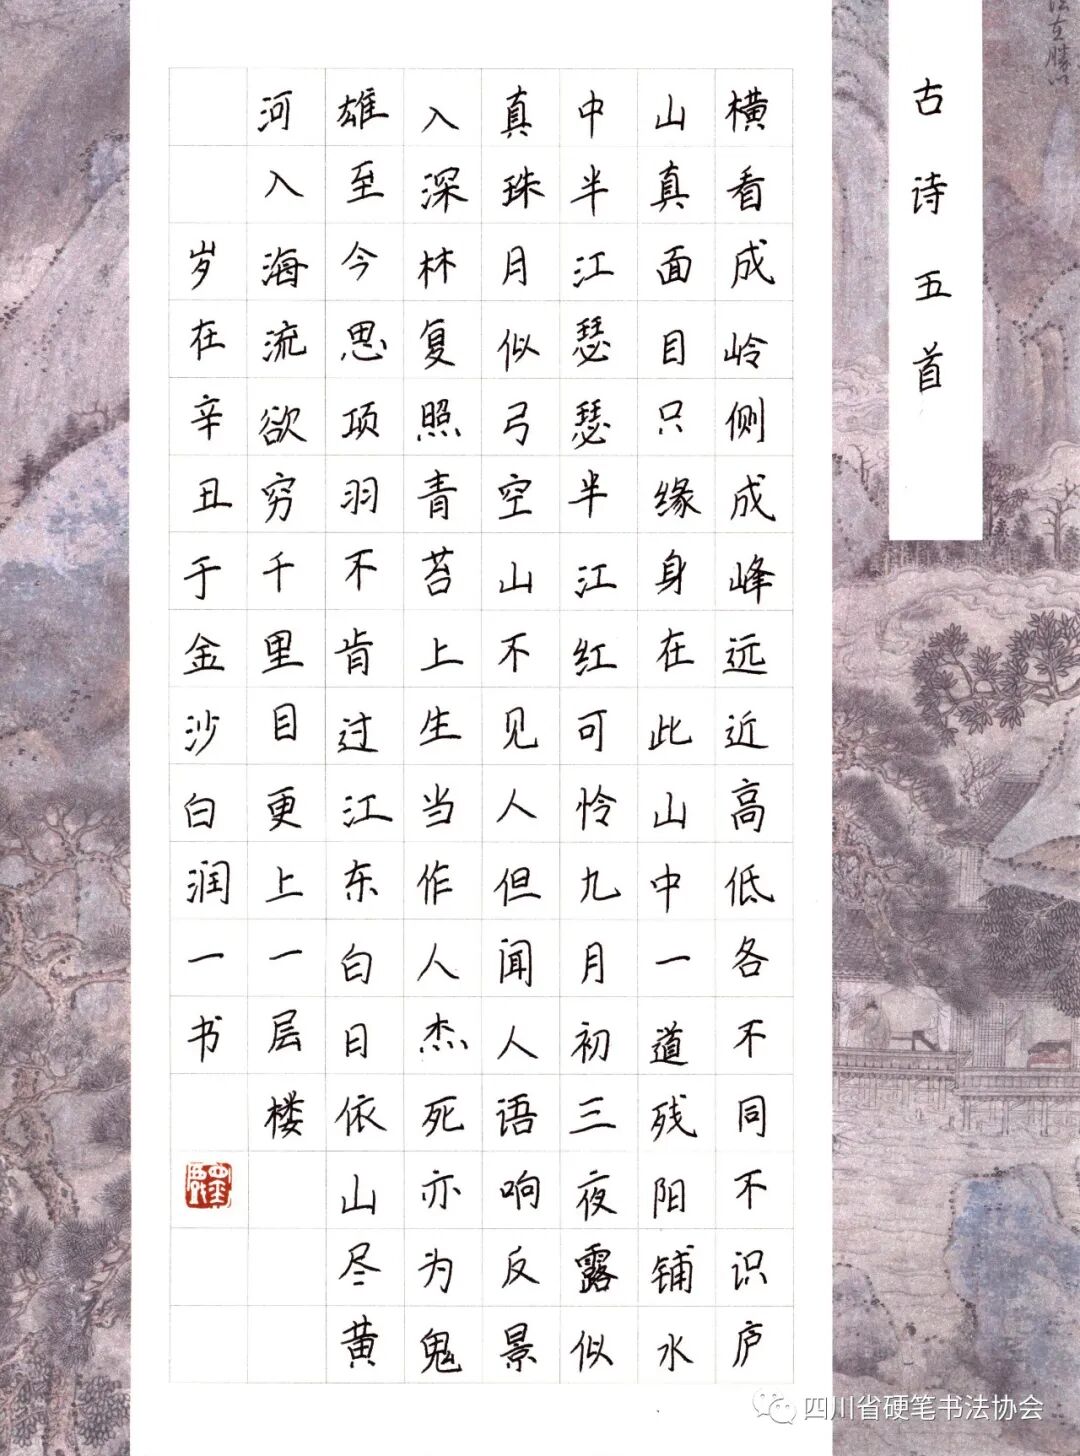 古诗五首
横看成岭侧成峰远近高低各不同不识庐
山真面目只缘身在此山中一道残阳铺水
中半江瑟瑟半江红可怜九月初三夜露似
真珠月似弓空山不见人但闻人语响反景
入深林复照青苔上生当作人杰死亦为鬼
雄至今思项羽不肯过江东白日依山尽黄
河入海流欲穷千里目更上一层楼
岁在辛丑于金沙白润一书
四川省硬笔书法协会